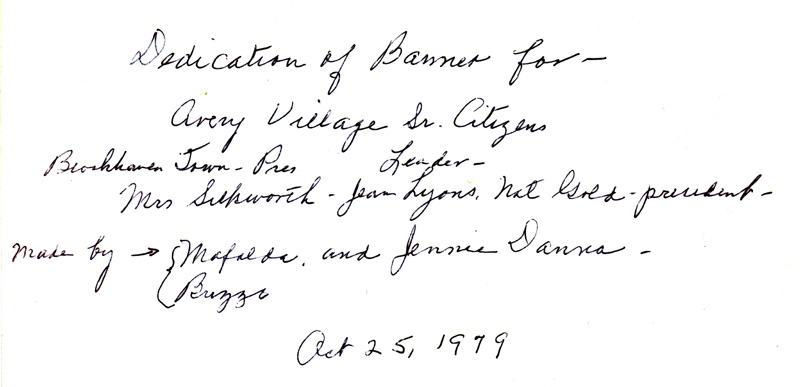 Dedication of Banner for -
Avery Village Sr. Citizens
Brookhaven Town - Pres Leader -
Mrs Silkworth - Jean Lyons, Nat Gold - president -
Made by → { Mafalda, and Jennie Danna -
Buzzi
Oct 25, 1979